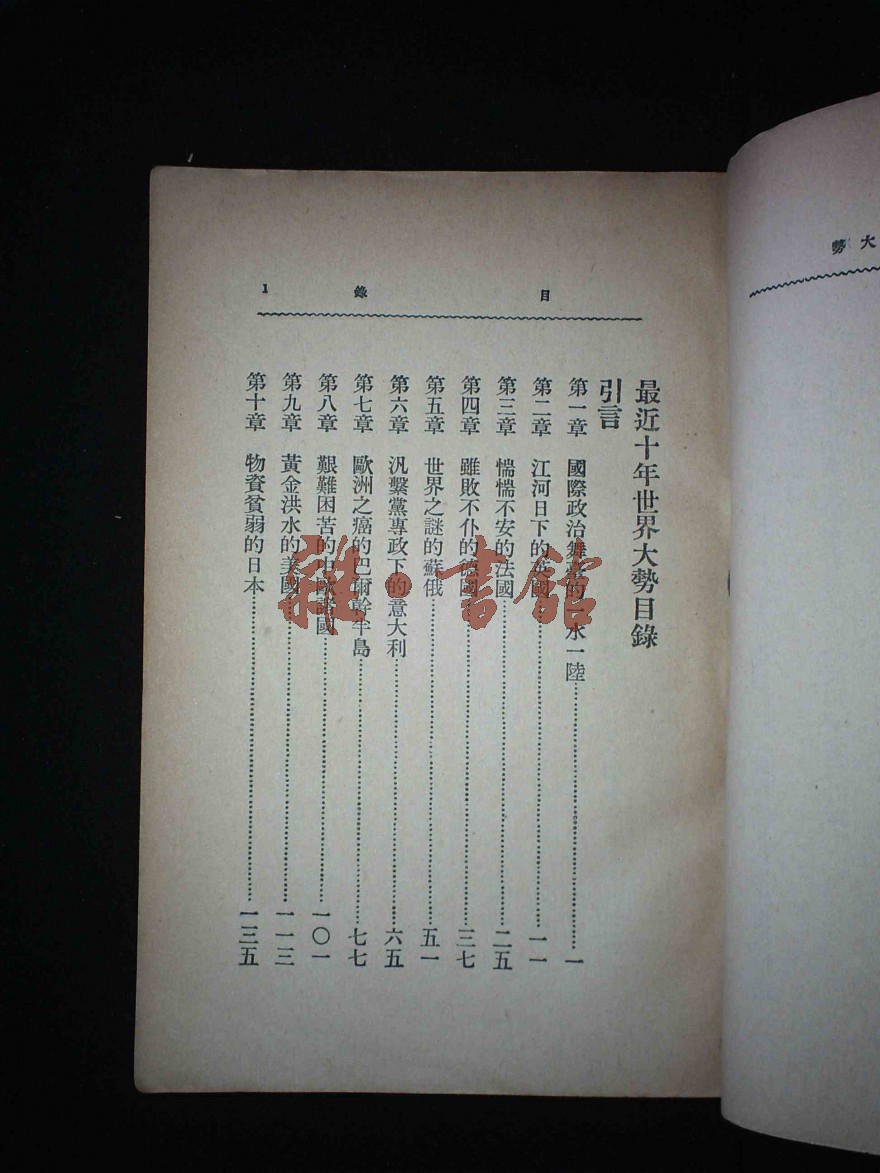 目錄 1
最近十年世界大勢目錄
引言
第一章 國際政治舞臺的一水一陸 一
第二章 江河日下的英國 一一
第三章 惴惴不安的法國 二五
第四章 雖敗不仆的德國 三七
第五章 世界之謎的蘇俄 五一
第六章 汎繫黨專政下的意大利 六五
第七章 歐洲之癌的巴爾幹半島 七七
第八章 艱難困苦的中歐諸國 一〇一
第九章 黃金洪水的美國 一一三
第十章 物資貧弱的日本 一三五
大勢
雜·書館